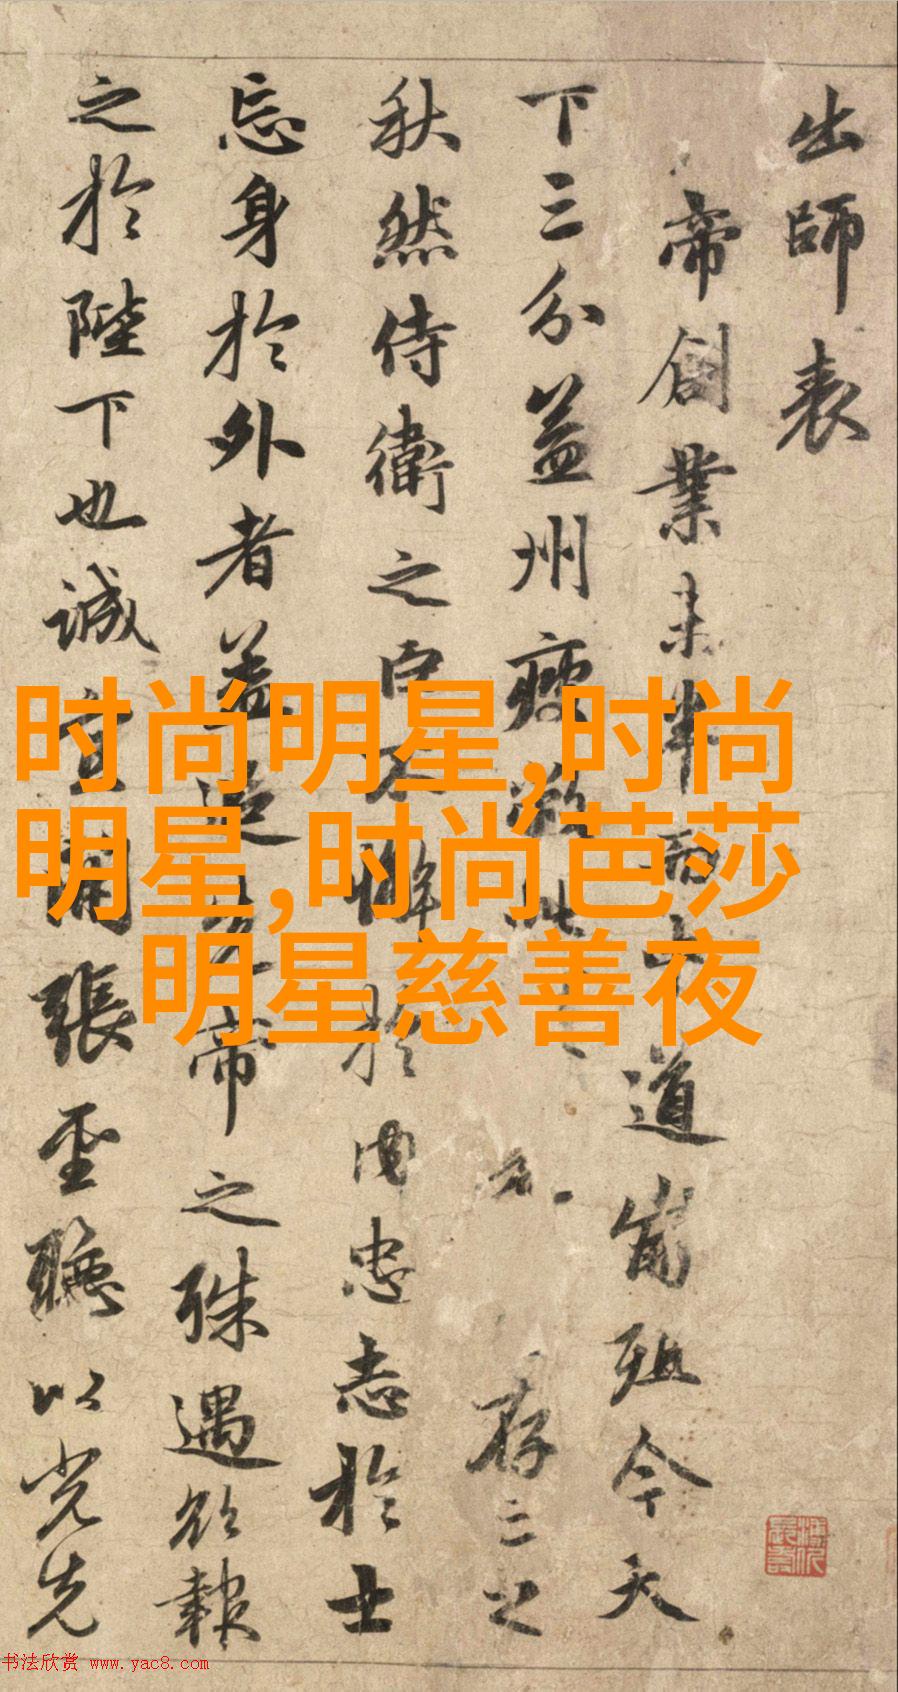 出師表
帝創業未半而中道崩殂今天
下三分益州疲敝此存亡之
秋然侍衛之臣不懈於内忠志於士
忘身於外者蓋追先帝之殊遇欲報
之於陛下也誠宜開張聖聽以光先
时尚明星,时尚
明星,时尚芭莎
明星慈善夜
书法欣赏 www.yac8.com